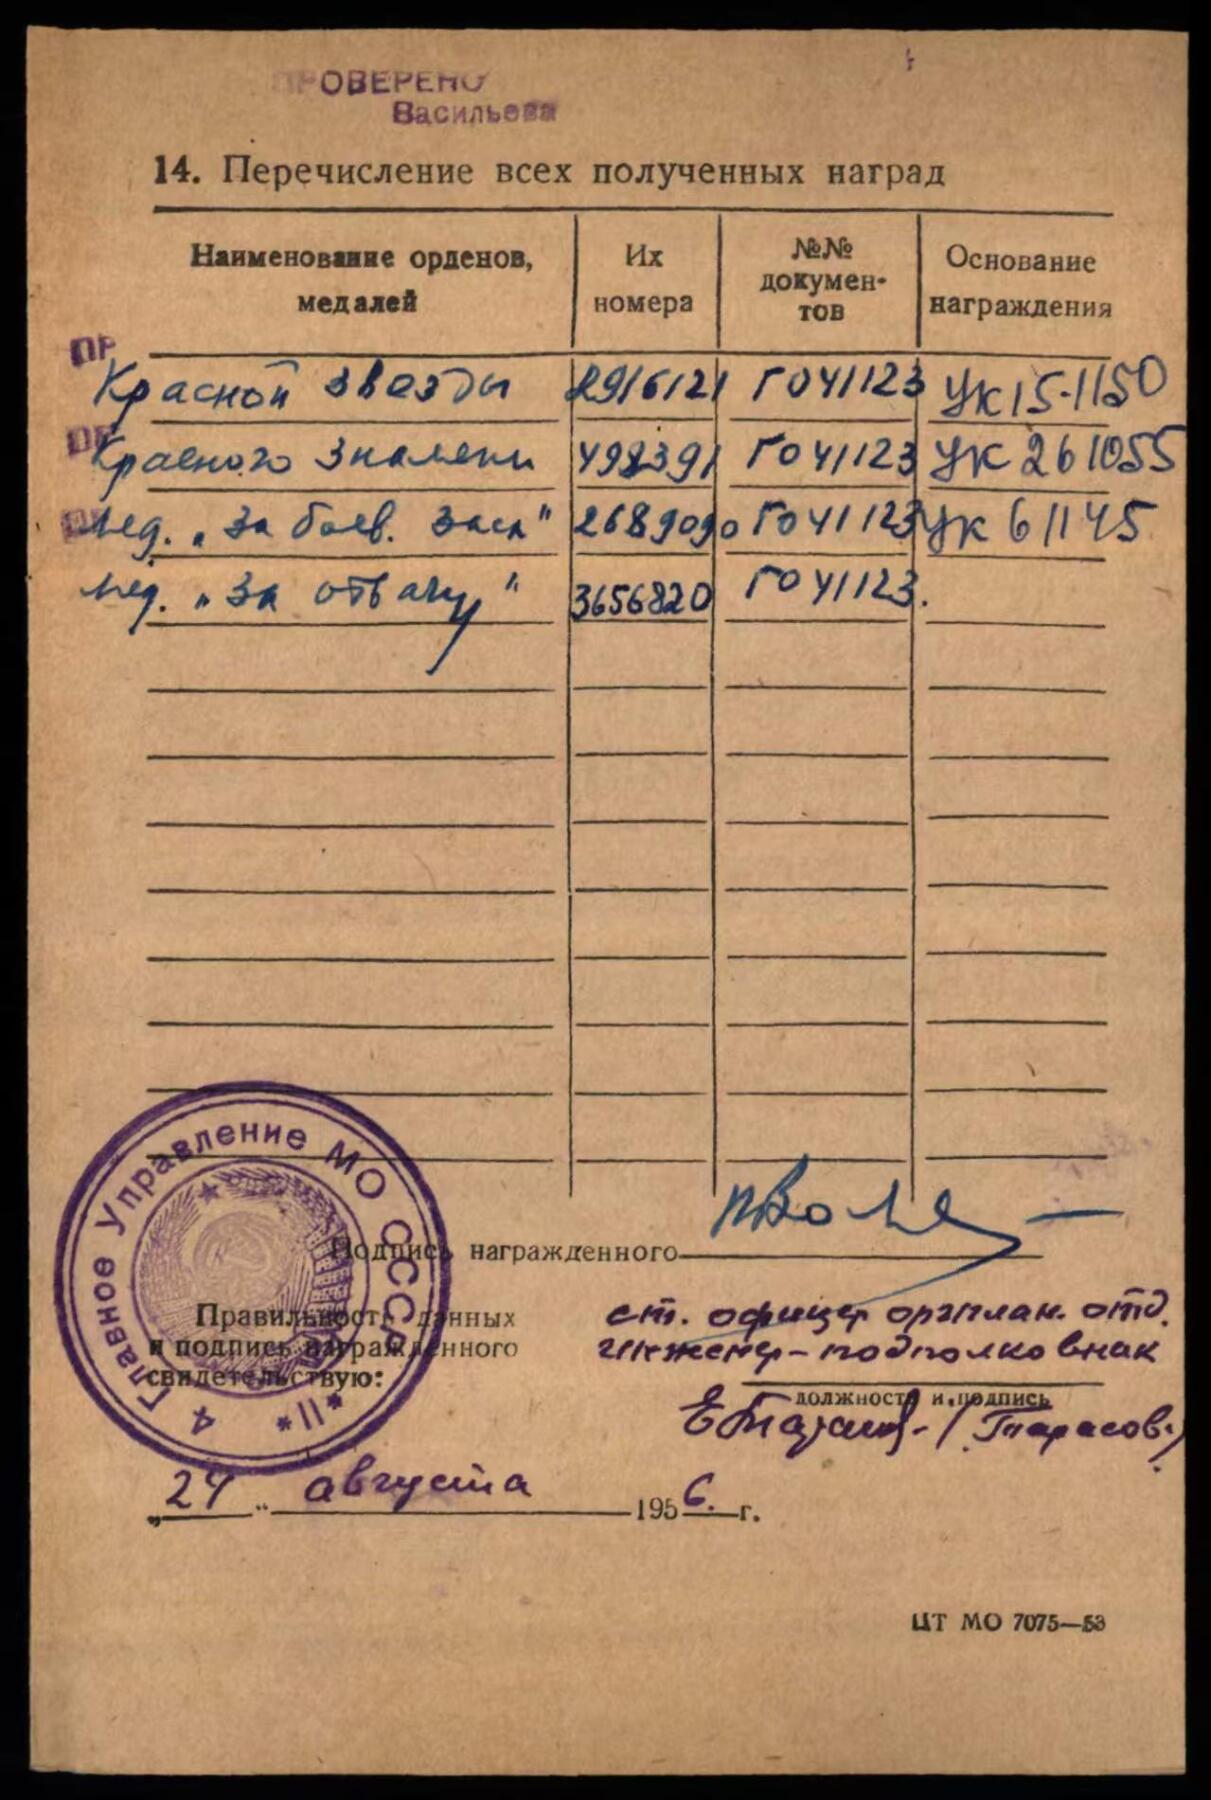 ПРОВЕРЕНО
Васильева
14. Перечисление всех полученных наград
Наименование орденов, медалей
Их номера
№№ докумен-тов
Основание награждения
ПР
Красной звезды 2916121 Г041123 УК 15-1150
ПР
Красного знамени 498391 Г041123 УК 261055
ПР
мед. „За боев. засл" 2689090 Г041123 УК 61145
мед. „За отвагу" 3656820 Г041123.
Подпись награжденного
Правильность данных
и подпись награжденного
свидетельствую:
ст. офицер оргплан. отд.
инженер-подполковник
должность и подпись
(Тарасов.)
4 Главное Управление МО СССР *11*
„24" августа 1956. г.
ЦТ МО 7075—53